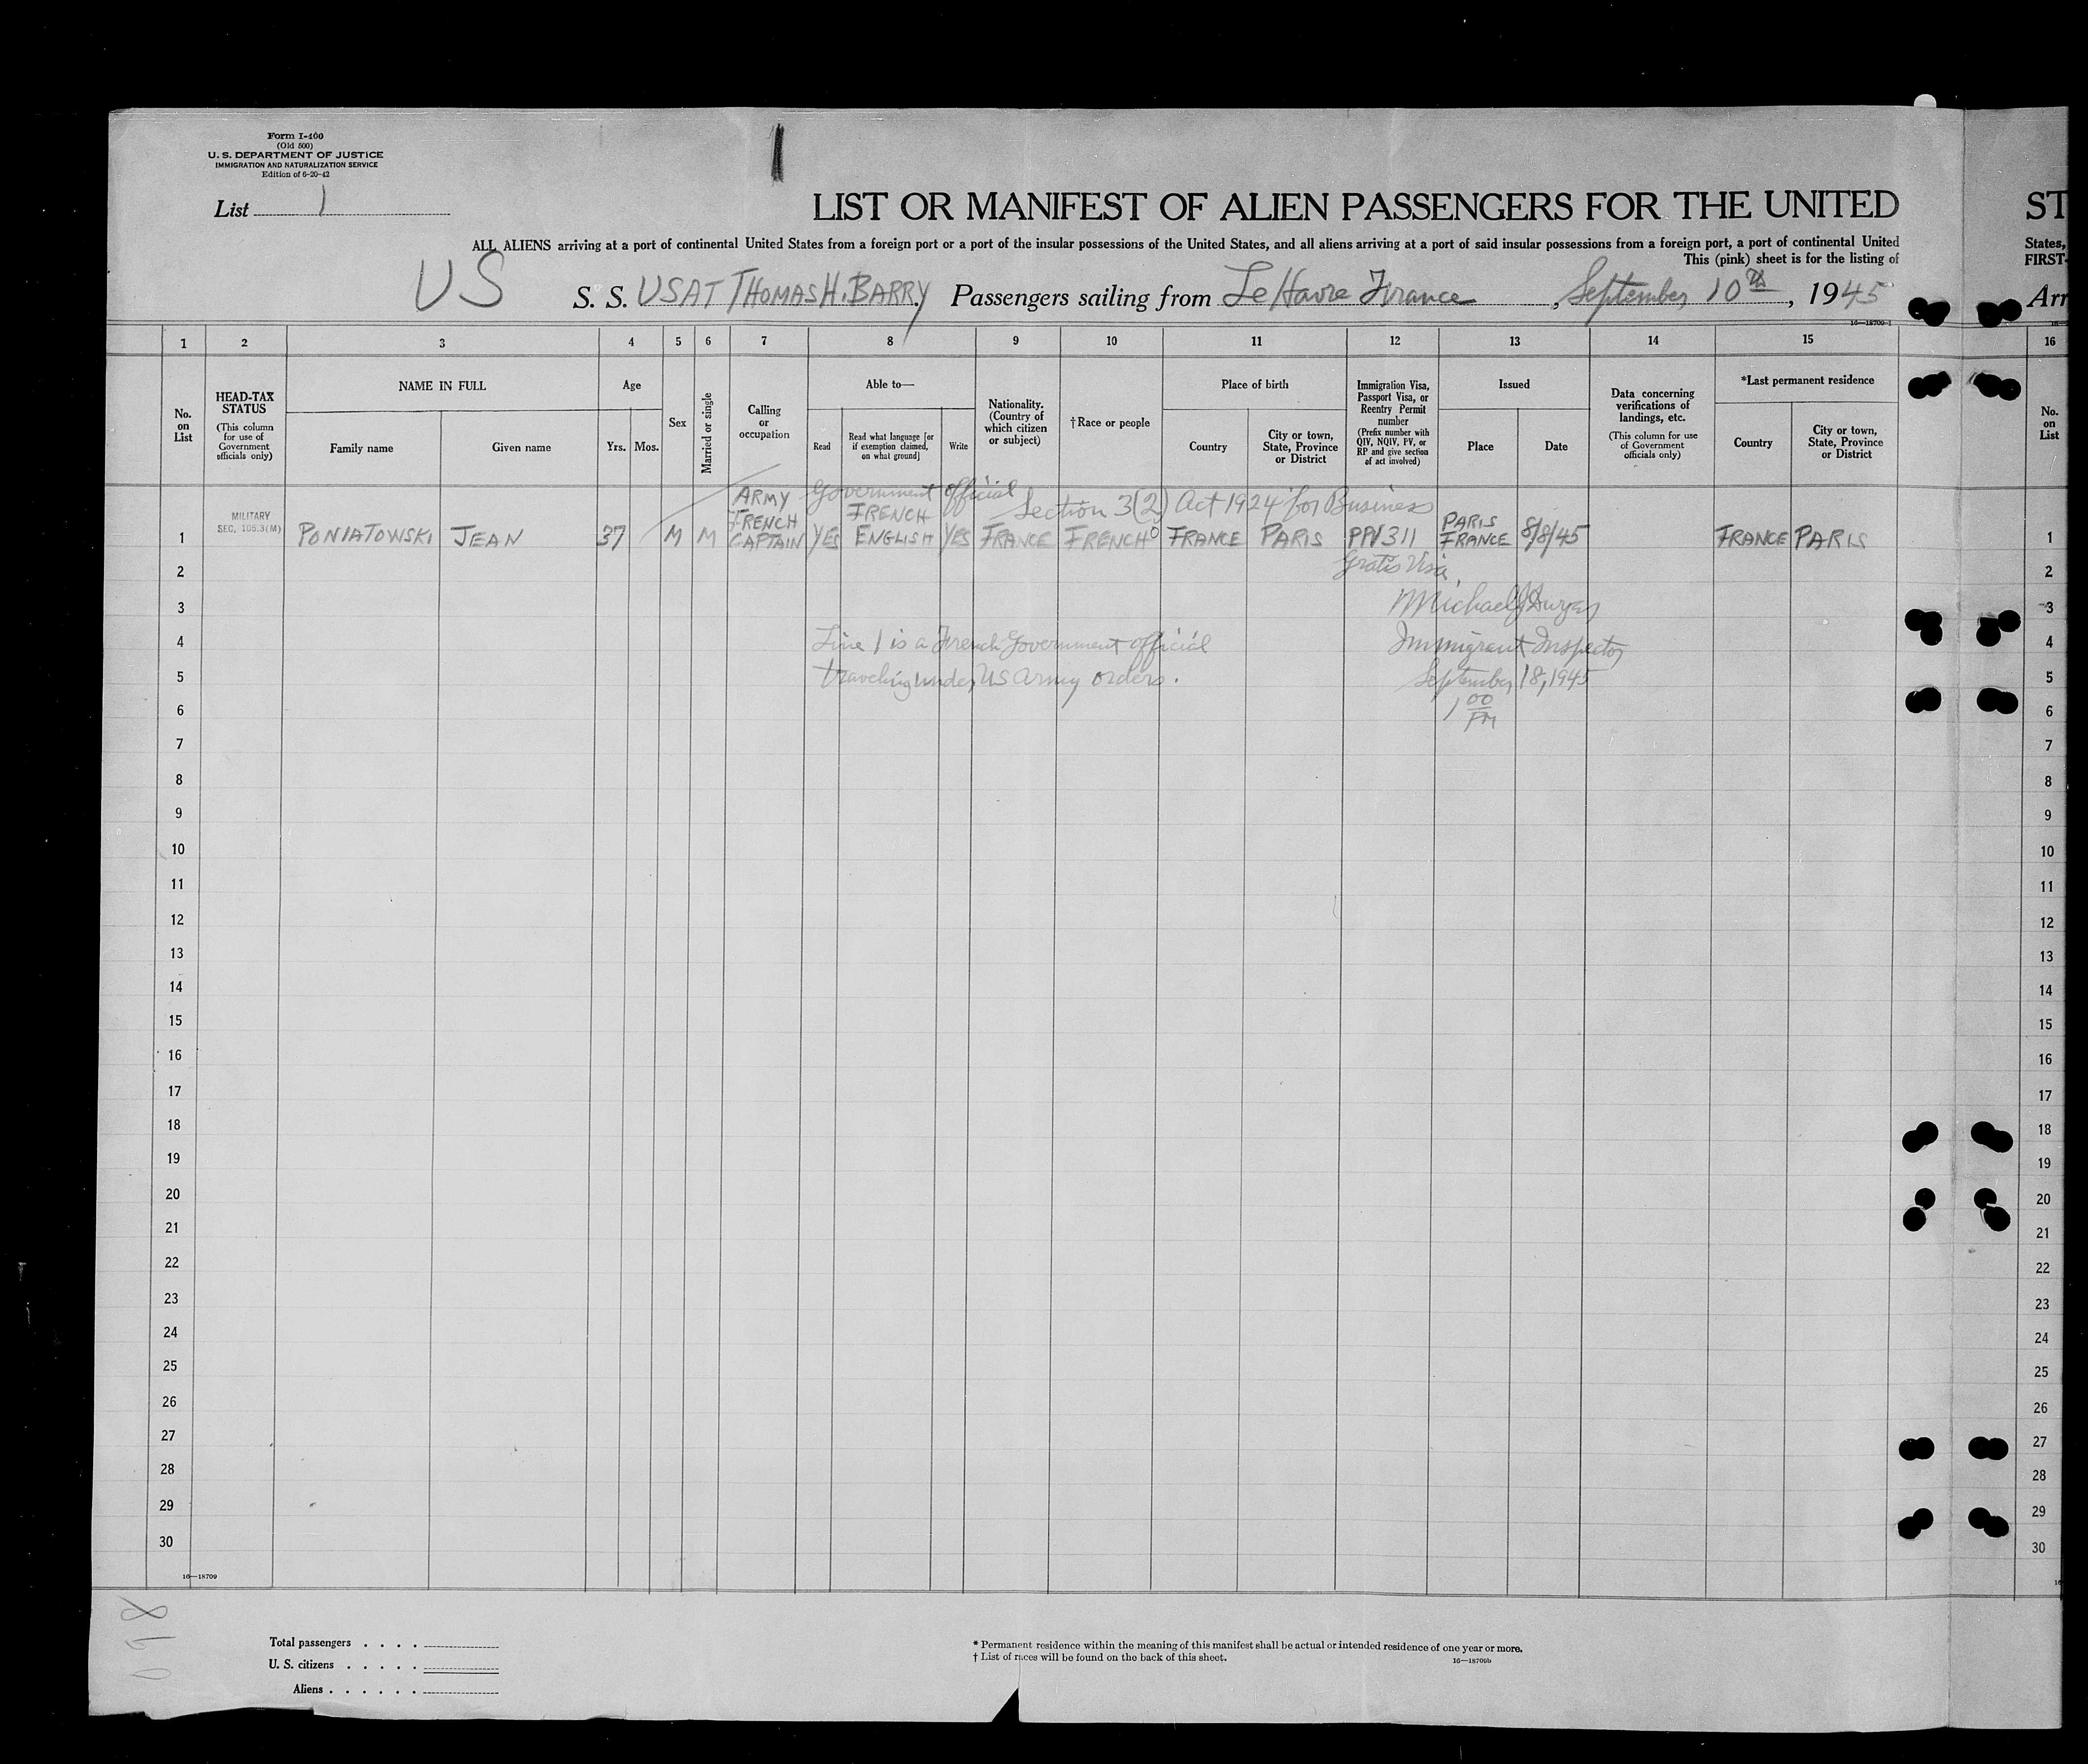 Form I-400
(Old 500)
U. S. DEPARTMENT OF JUSTICE
IMMIGRATION AND NATURALIZATION SERVICE
Edition of 6-20-42
1
List 1
LIST OR MANIFEST OF ALIEN PASSENGERS FOR THE UNITED
ST
ALL ALIENS arriving at a port of continental United States from a foreign port or a port of the insular possessions of the United States, and all aliens arriving at a port of said insular possessions from a foreign port, a port of continental United
States,
This (pink) sheet is for the listing of
FIRST-
US
S. S. USAT THOMAS H. BARRY Passengers sailing from Le Havre France, September 10th, 1945
Arr
16—18709-1
1 2 3 4 5 6 7 8 9 10 11 12 13 14 15 16
No. on List
HEAD-TAX STATUS
(This column for use of Government officials only)
NAME IN FULL
Family name
Given name
Age
Yrs.
Mos.
Sex
Married or single
Calling or occupation
Able to—
Read
Read what language [or if exemption claimed, on what ground]
Write
Nationality. (Country of which citizen or subject)
†Race or people
Place of birth
Country
City or town, State, Province or District
Immigration Visa, Passport Visa, or Reentry Permit number
(Prefix number with QIV, NQIV, PV, or RP and give section of act involved)
Issued
Place
Date
Data concerning verifications of landings, etc.
(This column for use of Government officials only)
*Last permanent residence
Country
City or town, State, Province or District
No. on List
Government official
Section 3(2) Act 1924 for Business
MILITARY
SEC. 105.3(M)
1 PONIATOWSKI JEAN 37 M M ARMY FRENCH CAPTAIN YES FRENCH ENGLISH YES FRANCE FRENCH FRANCE PARIS PPV 311 PARIS FRANCE 8/8/45 FRANCE PARIS 1
2 Gratis Visa 2
3 Michael J Dwyer 3
4 Line 1 is a French Government official Immigrant Inspector 4
5 traveling under US Army orders. September 18, 1945 5
6 1 00 PM 6
7 7
8 8
9 9
10 10
11 11
12 12
13 13
14 14
15 15
16 16
17 17
18 18
19 19
20 20
21 21
22 22
23 23
24 24
25 25
26 26
27 27
28 28
29 29
30 30
16—18709
Total passengers
U. S. citizens
Aliens
* Permanent residence within the meaning of this manifest shall be actual or intended residence of one year or more.
† List of races will be found on the back of this sheet.
16—18709b